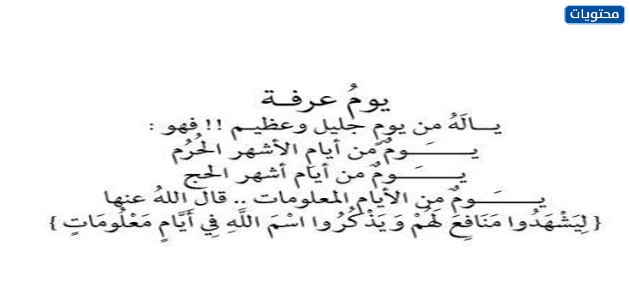 محتويات
يومُ عرفـة
يــالَهُ من يومٍ جليل وعظيـم !! فهو :
يــــــوَمٌ من أيامِ الأشهر الحُرُم
يــــــوَمٌ من أيام أشهر الحج
يــــــوَمٌ مِن الأيامِ المعلومات .. قال اللهُ عنها
{ لِيَشْهَدُوا مَنَافِعَ لَهُمْ وَيَذْكُرُوا اسْمَ اللَّهِ فِي أَيَّامٍ مَعْلُومَاتٍ }